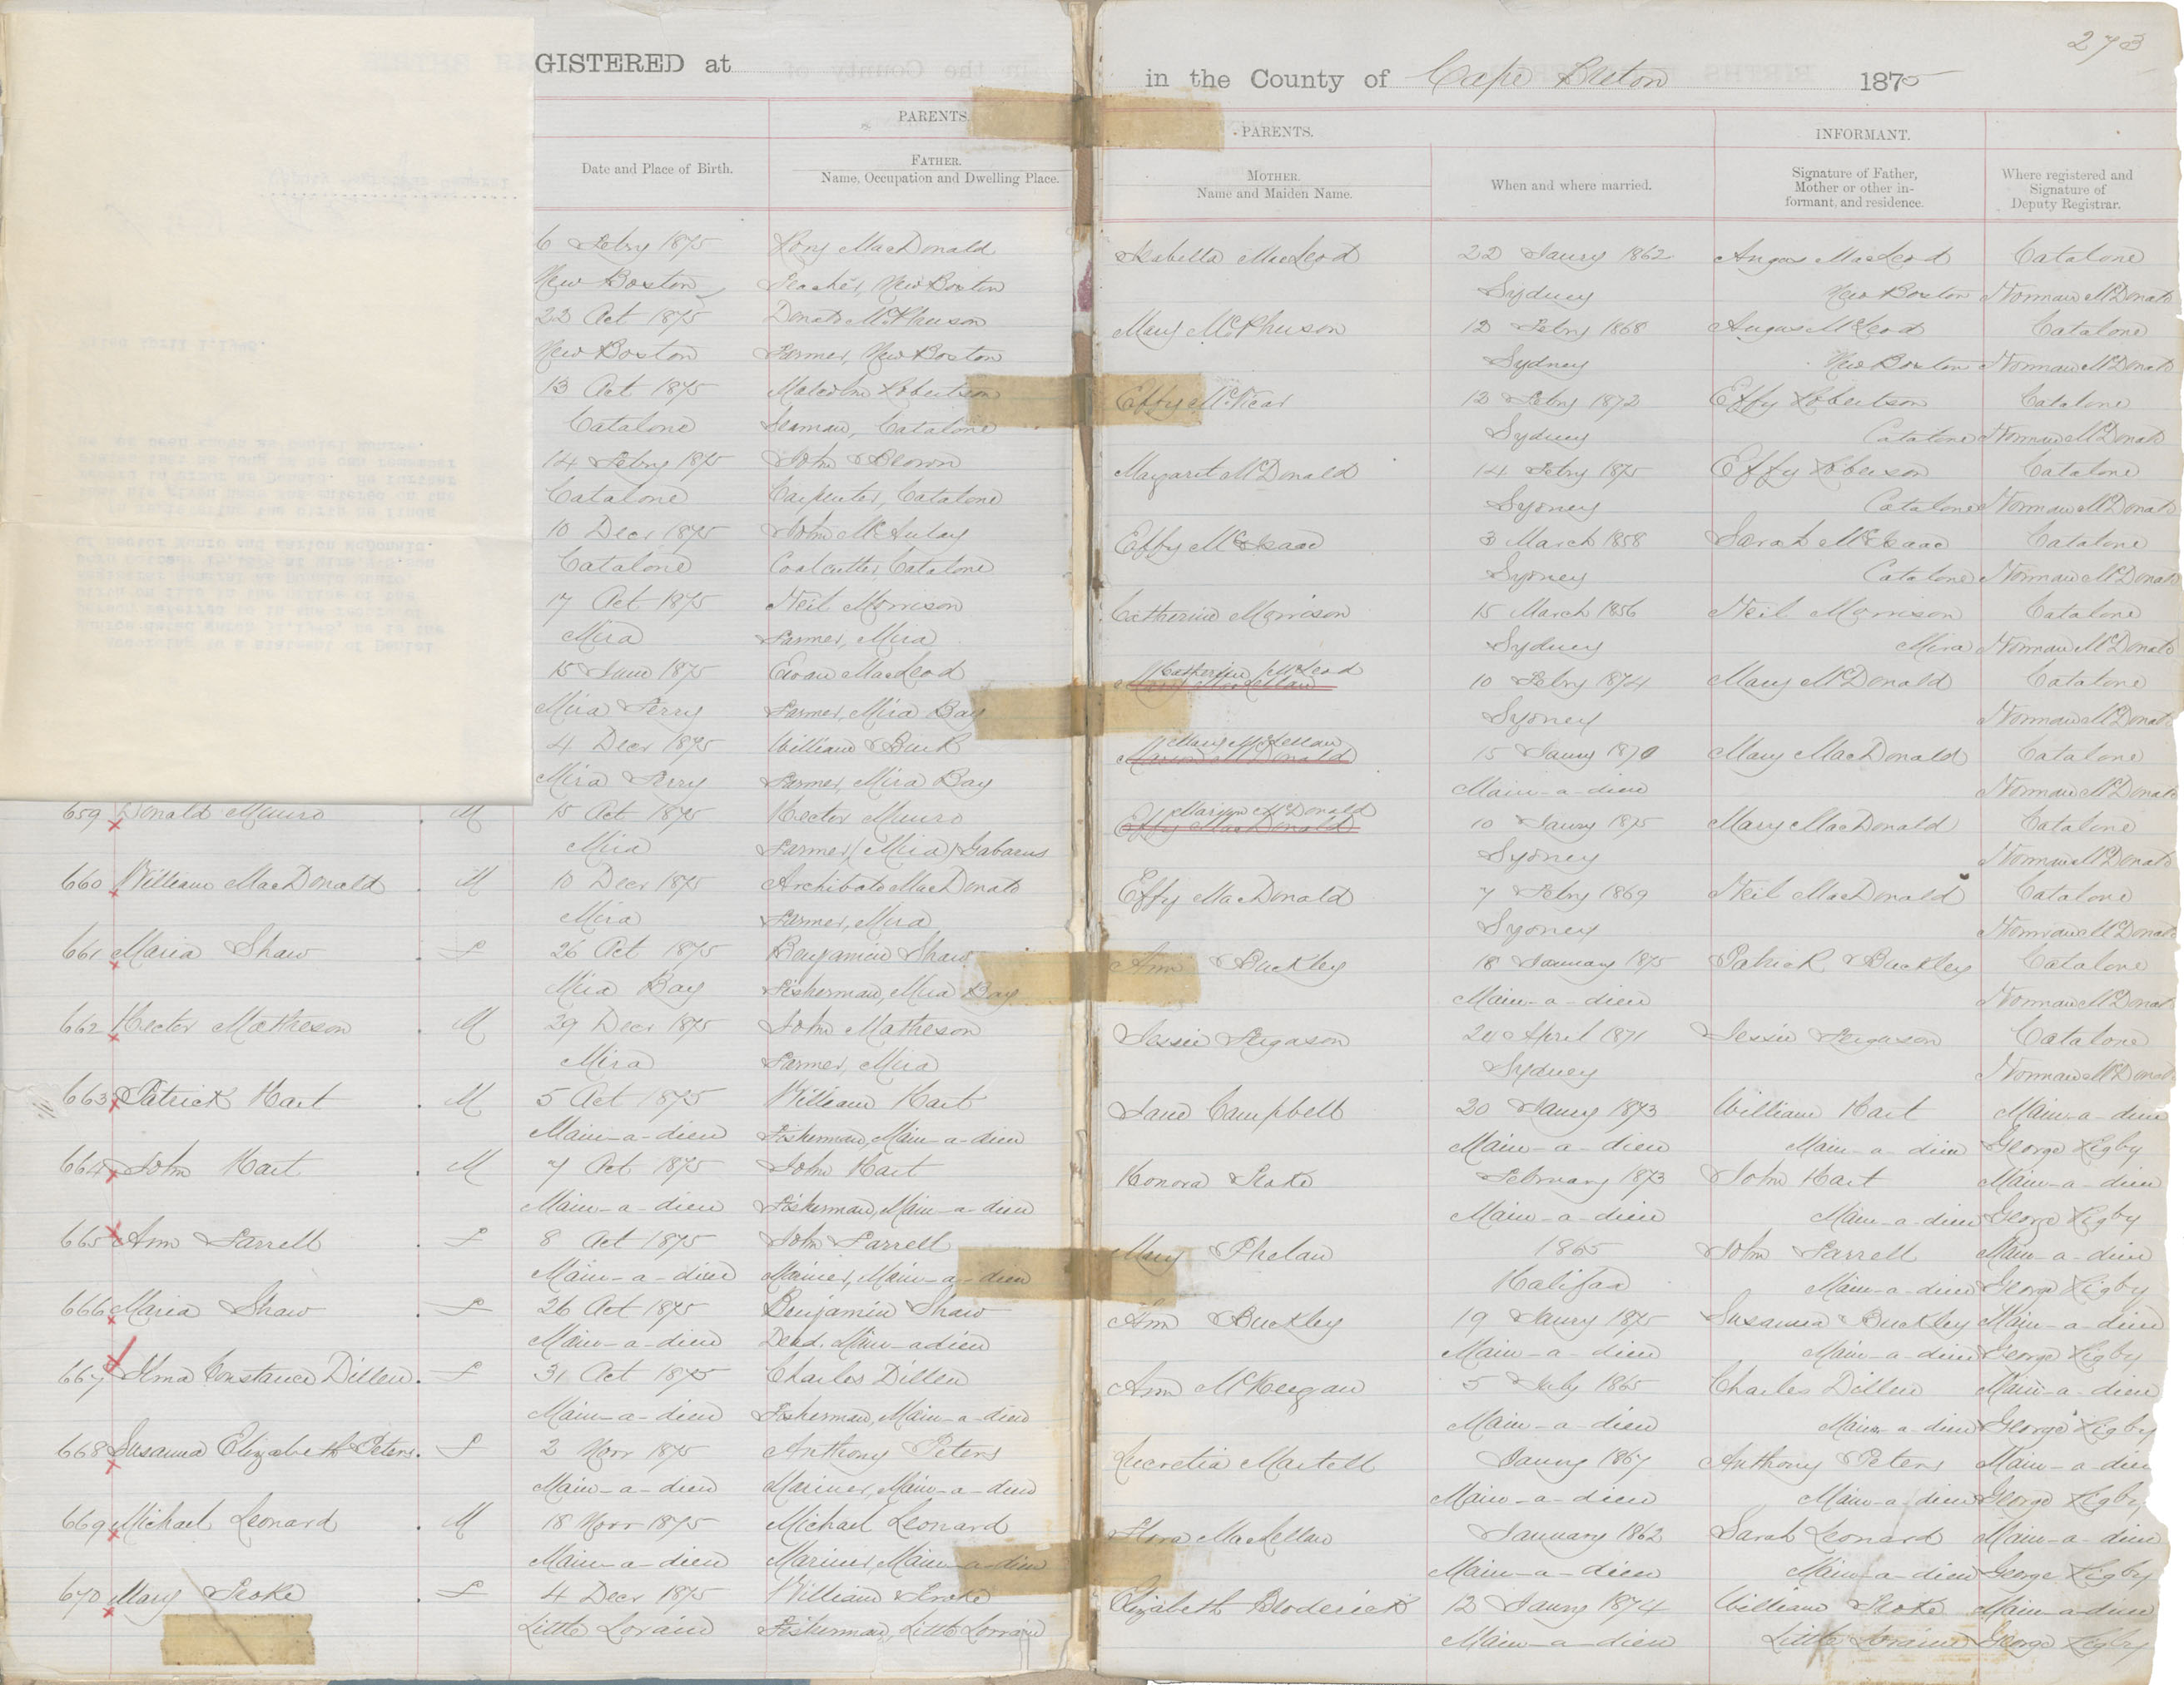 273
GISTERED at
in the County of Cape Breton 1875
PARENTS.
PARENTS.
INFORMANT.
Date and Place of Birth.
FATHER.
Name, Occupation and Dwelling Place.
MOTHER.
Name and Maiden Name.
When and where married.
Signature of Father,
Mother or other in-
formant, and residence.
Where registered and
Signature of
Deputy Registrar.
6 Febry 1875 Rory MacDonald Isabella MacLeod 22 Jany 1862 Angus MacLeod Catalone
New Boston Teacher, New Boston Sydney New Boston Norman McDonald
22 Oct 1875 Donald McPherson Mary McPherson 12 Febry 1868 Angus McLeod Catalone
New Boston Farmer, New Boston Sydney New Boston Norman McDonald
13 Oct 1875 Malcolm Robertson Effy McVicar 12 Febry 1872 Effy Robertson Catalone
Catalone Seaman, Catalone Sydney Catalone Norman McDonald
14 Febry 1875 John Brown Margaret McDonald 14 Febry 1875 Effy Catalone
Catalone Carpenter, Catalone Sydney Catalone Norman McDonald
10 Decr 1875 John McAulay Effy McIsaac 3 March 1858 Sarah McIsaac Catalone
Catalone Coalcutter, Catalone Sydney Catalone Norman McDonald
7 Oct 1875 Neil Morrison Catherine Morrison 15 March 1856 Neil Morrison Catalone
Mira Farmer, Mira Sydney Mira Norman McDonald
15 June 1875 Ewan MacLeod Catherine McLeod 10 Febry 1874 Mary McDonald Catalone
Mira Ferry Farmer, Mira Bay Sydney Norman McDonald
4 Decr 1875 William Burk Mary McLellan Marion McDonald 15 Jany 1870 Mary MacDonald Catalone
Mira Ferry Farmer, Mira Bay Main-a-dieu Norman McDonald
659 Donald Munro M 15 Oct 1875 Hector Munro Marion McDonald Effy MacDonald 10 Jany 1875 Mary MacDonald Catalone
Mira Farmer (Mira) Gabarus Sydney Norman McDonald
660 William MacDonald M 10 Decr 1875 Archibald MacDonald Effy MacDonald 7 Febry 1869 Neil MacDonald Catalone
Mira Farmer, Mira Sydney Norman McDonald
661 Maria Shaw F 26 Oct 1875 Benjamin Shaw Ann Buckley 18 January 1875 Patrick Buckley Catalone
Mira Bay Fisherman, Mira Bay Main-a-dieu Norman McDonald
662 Hector Matheson M 29 Decr 1875 John Matheson Jessie Ferguson 24 April 1871 Jessie Ferguson Catalone
Mira Farmer, Mira Sydney Norman McDonald
663 Patrick Hart M 5 Oct 1875 William Hart Jane Campbell 20 Jany 1873 William Hart Main-a-dieu
Main-a-dieu Fisherman, Main-a-dieu Main-a-dieu Main-a-dieu George Rigby
664 John Hart M 7 Oct 1875 John Hart Honora February 1873 John Hart Main-a-dieu
Main-a-dieu Fisherman, Main-a-dieu Main-a-dieu Main-a-dieu George Rigby
665 Ann Farrell F 8 Oct 1875 John Farrell Mary Phelan 1865 John Farrell Main-a-dieu
Main-a-dieu Mariner, Main-a-dieu Halifax Main-a-dieu George Rigby
666 Maria Shaw F 26 Oct 1875 Benjamin Shaw Ann Buckley 19 Jany 1875 Susanna Buckley Main-a-dieu
Main-a-dieu Dead. Main-a-dieu Main-a-dieu Main-a-dieu George Rigby
667 Constance Dillen F 31 Oct 1875 Charles Dillen Ann McKeegan 5 July 1865 Charles Dillen Main-a-dieu
Main-a-dieu Fisherman, Main-a-dieu Main-a-dieu Main-a-dieu George Rigby
668 Susanna Elizabeth Peters F 2 Novr 1875 Anthony Peters Lucretia Martell Jany 1867 Anthony Peters Main-a-dieu
Main-a-dieu Mariner, Main-a-dieu Main-a-dieu Main-a-dieu George Rigby
669 Michael Leonard M 18 Novr 1875 Michael Leonard Flora MacLellan January 1862 Sarah Leonard Main-a-dieu
Main-a-dieu Mariner, Main-a-dieu Main-a-dieu Main-a-dieu George Rigby
670 Mary F 4 Decr 1875 William Elizabeth Broderick 12 Jany 1874 William Main-a-dieu
Little Lorain Fisherman, Little Lorrain Main-a-dieu Little Lorain George Rigby